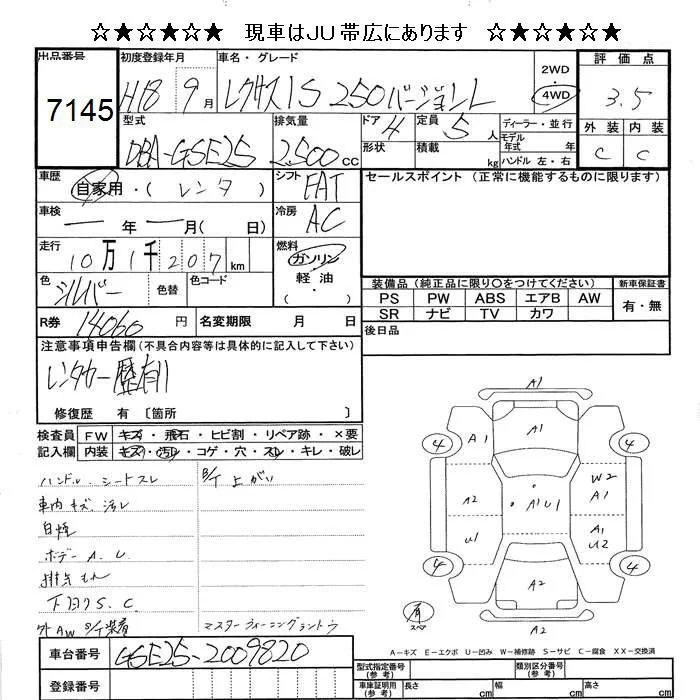 ☆★☆★☆ 現車はJU帯広にあります ☆★☆★☆
出品番号 7145
初度登録年月 H18 9月
車名・グレード レクサスIS 250バージョンL
2WD 4WD
評価点 3.5
外装 内装
C C
型式 DBA-GSE25
排気量 2,500cc
ドア 4 定員 5人
形状 積載 kg
ディーラー・並行
モデル年式 年
ハンドル 左・右
車歴 自家用・(レンタ)
シフト FAT
セールスポイント(正常に機能するものに限ります)
車検 ー年ー月(日)
冷房 AC
走行 10万1千207km
燃料 ガソリン 軽油 ( )
色 シルバー 色替 色コード
装備品(純正品に限り○をつけてください) 新車保証書
PS PW ABS エアB AW 有・無
SR ナビ TV カワ
R券 14060円 名変期限 月 日
後日品
注意事項申告欄(不具合内容等は具体的に記入して下さい)
レンタカー歴有!!
修復歴 有〔箇所 〕
検査員 FW キズ・飛石・ヒビ割・リペア跡・×要
記入欄 内装 キズ・汚れ・コゲ・穴・スレ・キレ・破レ
ハンドル、シートスレ
車内キズ、汚レ
ボデーA、U
下回りS、C
上がい
マスターウォーニングランプ
A1
A1 A1
4 4
A2 A1U1 W2 A1
U1 A1 U2
4 4
A2
A2
有 スペア
A－キズ E－エクボ U－凹み W－補修跡 S－サビ C－腐食 XX－交換済
車台番号 GSE25-2009820
登録番号
型式指定番号(参考) 類別区分番号(参考)
車庫証明用(参考) 長さ cm 幅 cm 高さ cm